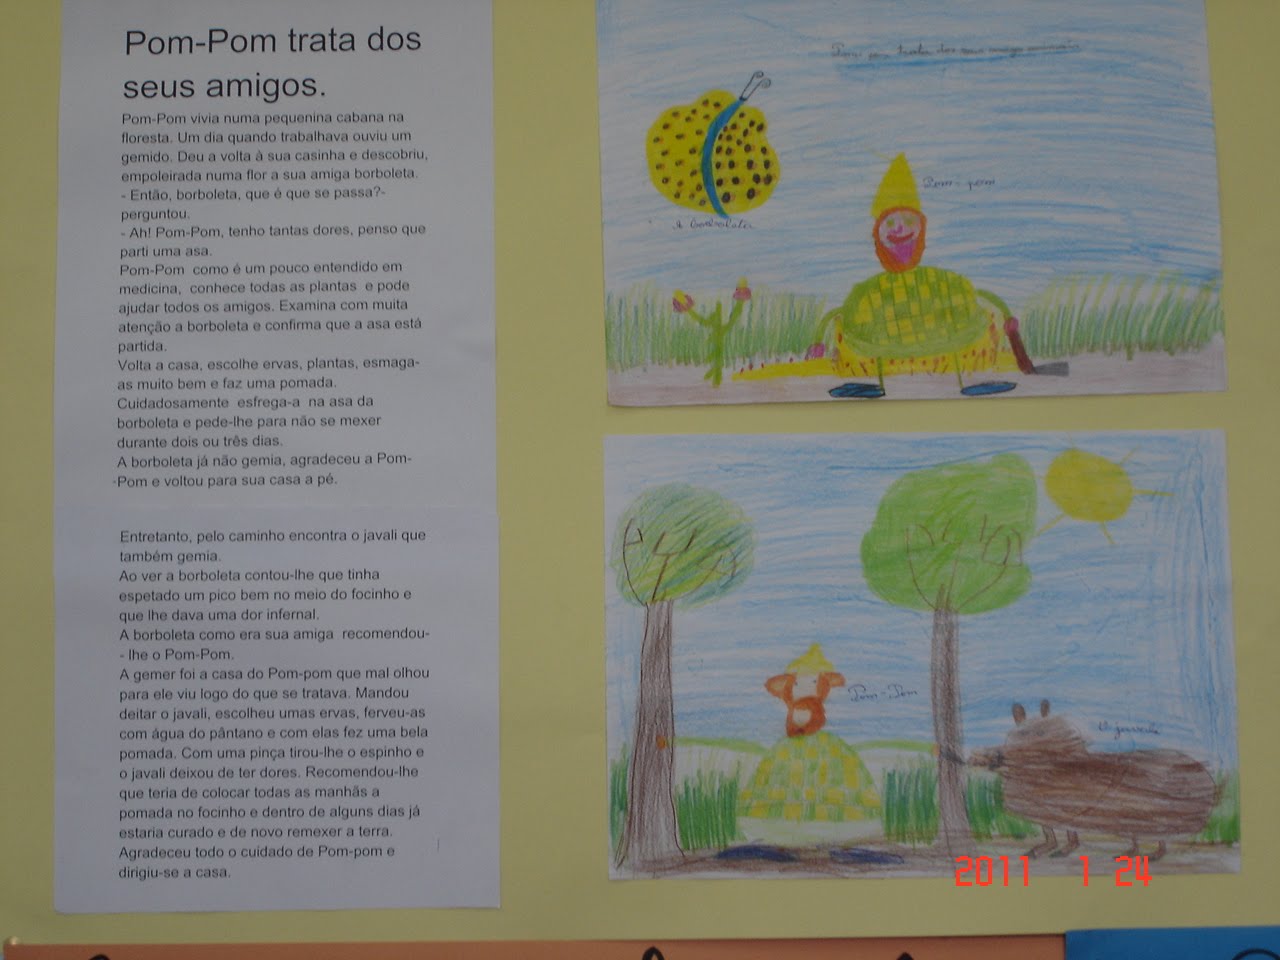 Pom-Pom trata dos
seus amigos.
Pom-Pom vivia numa pequenina cabana na
floresta. Um dia quando trabalhava ouviu um
gemido. Deu a volta à sua casinha e descobriu,
empoleirada numa flor a sua amiga borboleta.
- Então, borboleta, que é que se passa?-
perguntou.
- Ah! Pom-Pom, tenho tantas dores, penso que
parti uma asa.
Pom-Pom como é um pouco entendido em
medicina, conhece todas as plantas e pode
ajudar todos os amigos. Examina com muita
atenção a borboleta e confirma que a asa está
partida.
Volta a casa, escolhe ervas, plantas, esmaga-
as muito bem e faz uma pomada.
Cuidadosamente esfrega-a na asa da
borboleta e pede-lhe para não se mexer
durante dois ou três dias.
A borboleta já não gemia, agradeceu a Pom-
-Pom e voltou para sua casa a pé.
Entretanto, pelo caminho encontra o javali que
também gemia.
Ao ver a borboleta contou-lhe que tinha
espetado um pico bem no meio do focinho e
que lhe dava uma dor infernal.
A borboleta como era sua amiga recomendou-
- lhe o Pom-Pom.
A gemer foi a casa do Pom-pom que mal olhou
para ele viu logo do que se tratava. Mandou
deitar o javali, escolheu umas ervas, ferveu-as
com água do pântano e com elas fez uma bela
pomada. Com uma pinça tirou-lhe o espinho e
o javali deixou de ter dores. Recomendou-lhe
que teria de colocar todas as manhãs a
pomada no focinho e dentro de alguns dias já
estaria curado e de novo remexer a terra.
Agradeceu todo o cuidado de Pom-pom e
dirigiu-se a casa.
trata dos seus amigos
Pom-pom
A borboleta
Pom-Pom
O javali
2011 1 24